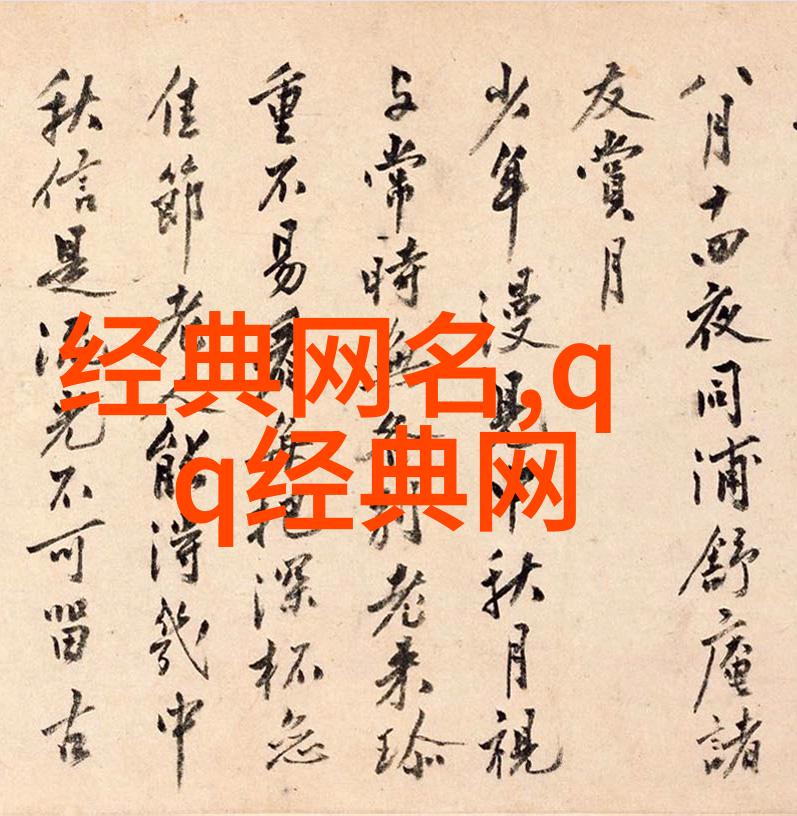 八月十四夜同浦舒庵諸
友賞月
少年漫見中秋月視
与常時無別老来珎
重不易把深杯
佳節老人能得幾中
秋信是流光不可留古
经典网名,q
q经典网